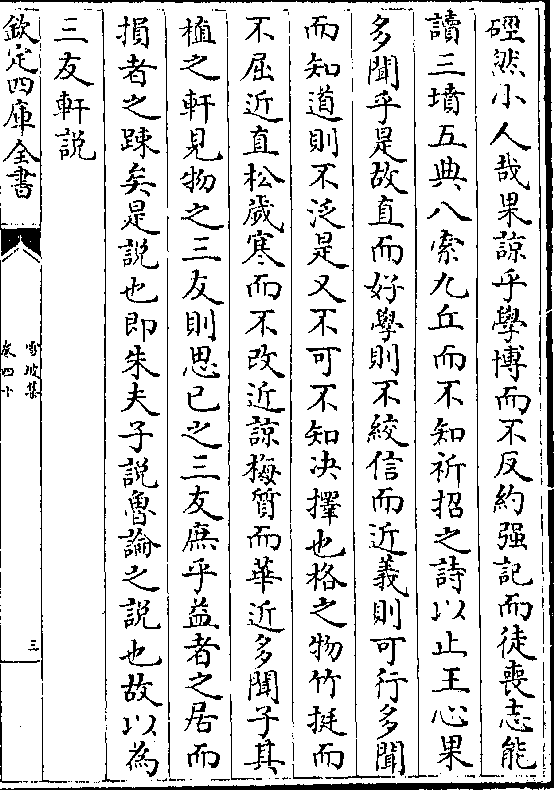 硜然小人哉果諒乎學博而不反約强記而徒喪志能
讀三墳五典八索九丘而不知祈招之詩以止王心果
多聞乎是故直而好學則不絞信而近義則可行多聞
而知道則不泛是又不可不知决擇也格之物竹挺而
不屈近直松歲寒而不改近諒梅質而華近多聞子其
植之軒見物之三友則思已之三友庶乎益者之居而
損者之踈矣是說也即朱夫子說魯論之說也故以為
三友軒說
欽定四庫全書
雪坡集
卷四十
三